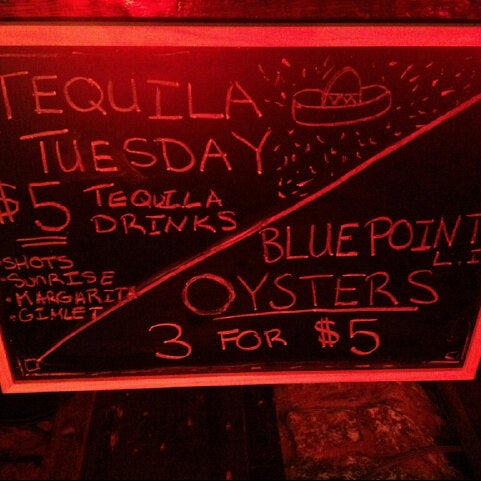 TEQUILA
TUESDAY
$5 TEQUILA
DRINKS
•SHOTS
•SUNRISE
•MARGARITA
•GIMLET
BLUEPOINT
L.I
OYSTERS
3 FOR $5